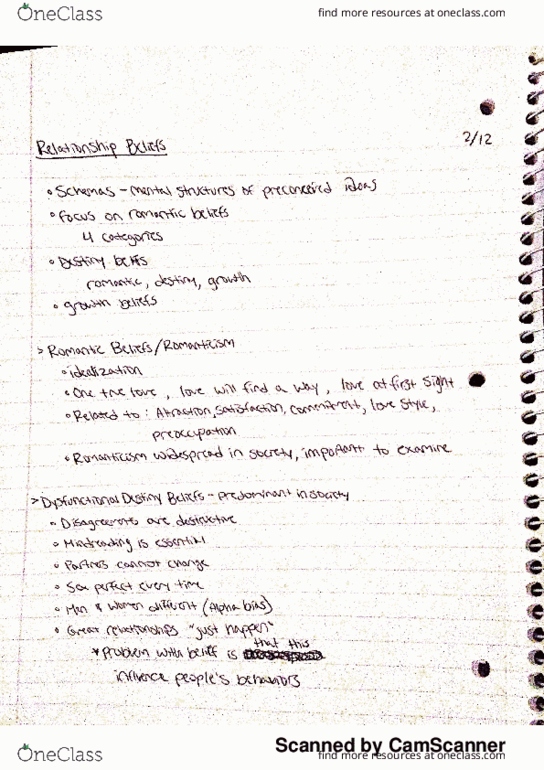 OneClass
find more resources at oneclass.com
Relationship Beliefs
2/12
• Schemas - mental structures of preconceived ideas
• Focus on romantic beliefs
4 categories
• Destiny beliefs
romantic, destiny, growth
• growth beliefs
> Romantic Beliefs/Romanticism
• idealization
• One true love, love will find a way, love at first sight
• Related to: Attraction, satisfaction, commitment, love style,
preoccupation
• Romanticism widespread in society, important to examine
> Dysfunctional Destiny Beliefs - predominant in society
• Disagreements are destructive
• Mindreading is essential
• Partners cannot change
• Sex perfect every time
• Men & Women different (Alpha bias)
• Great relationships "just happen"
that this
* Problem with belief is
influence people's behaviors
Scanned by CamScanner
OneClass
find more resources at oneclass.com